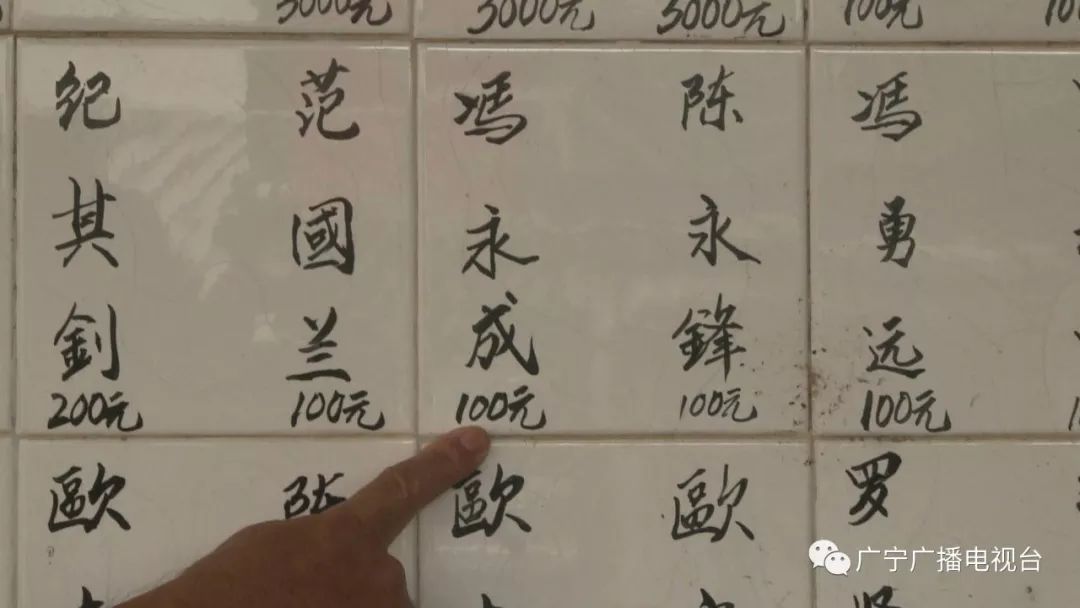 3000元 3000元 3000元 100元
纪其釗 200元
范國兰 100元
馮永成 100元
陈永鋒 100元
馮勇远 100元
歐
歐
歐
罗
广宁广播电视台